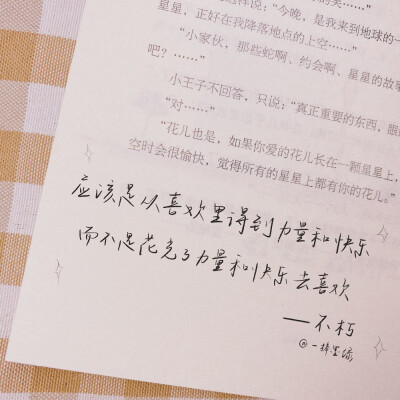 星星，正好在我降落地点的上空……”
“小家伙，那些蛇啊、约会啊、星星的故事
吧？……”
小王子不回答，只说：“真正重要的东西，眼
“对……”
“花儿也是，如果你爱的花儿长在一颗星星上，
空时会很愉快，觉得所有的星星上都有你的花儿。”
应该是从喜欢里得到力量和快乐
而不是花光了力量和快乐去喜欢
——不朽